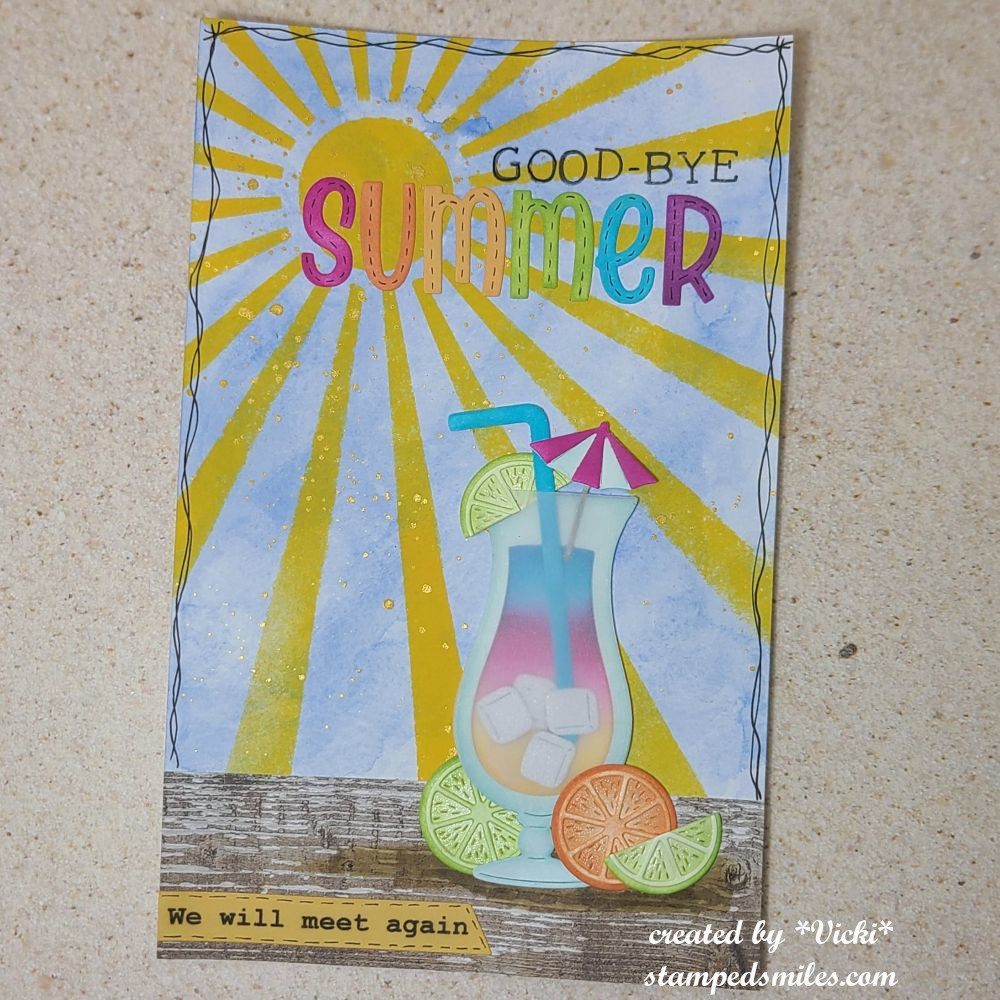 GOOD-BYE
SUMMER
We will meet again
created by *Vicki*
stampedsmiles.com